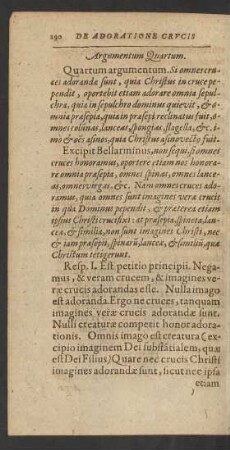 290 DE ADORATIONE CRVCIS
Argumentum Quartum.
Quartum argumentum. Si omnes cru-
ces adorandæ sunt, quia Christus in cruce pe-
pendit, oportebit etiam adorare omnia sepul-
chra, quia in sepulchro dominus quievit, & o-
mnia præsepia, quia in præsepi reclinatus fuit, o-
mnes colūnas, lanceas, spongias, flagella, &c. i-
mò & oēs asinos, quia Christus asino vectus fuit.
Excipit Bellarminus, non sequi, si omnes
cruces honoramus, oportere etiam nos honora-
re omnia præsepia, omnes spinas, omnes lance-
as, omnes virgas, &c. Nam omnes cruces ado-
ramus, quia omnes sunt imagines veræ crucis
in qua Dominus pependit, & præterea etiam
ipsius Christi crucifixi: at præsepia, spineta, lan-
ceæ, & similia, non sunt imagines Christi, nec
& iam præsepii, spinarū, lanceæ, & similiū, quæ
Christum tetigerunt.
Resp. I. Est petitio principii. Nega-
mus, & veram crucem, & imagines ve-
ræ crucis adorandas esse. Nulla imago
est adoranda. Ergo ne cruces, tanquam
imagines veræ crucis adorandæ sunt.
Nulli creaturæ competit honor adora-
tionis. Omnis imago est creatura (ex-
cipio imaginem Dei substātialem, quæ
est Dei Filius) Quare nec crucis Christi
imagines adorandæ sunt, sicut nec ipsa
etiam